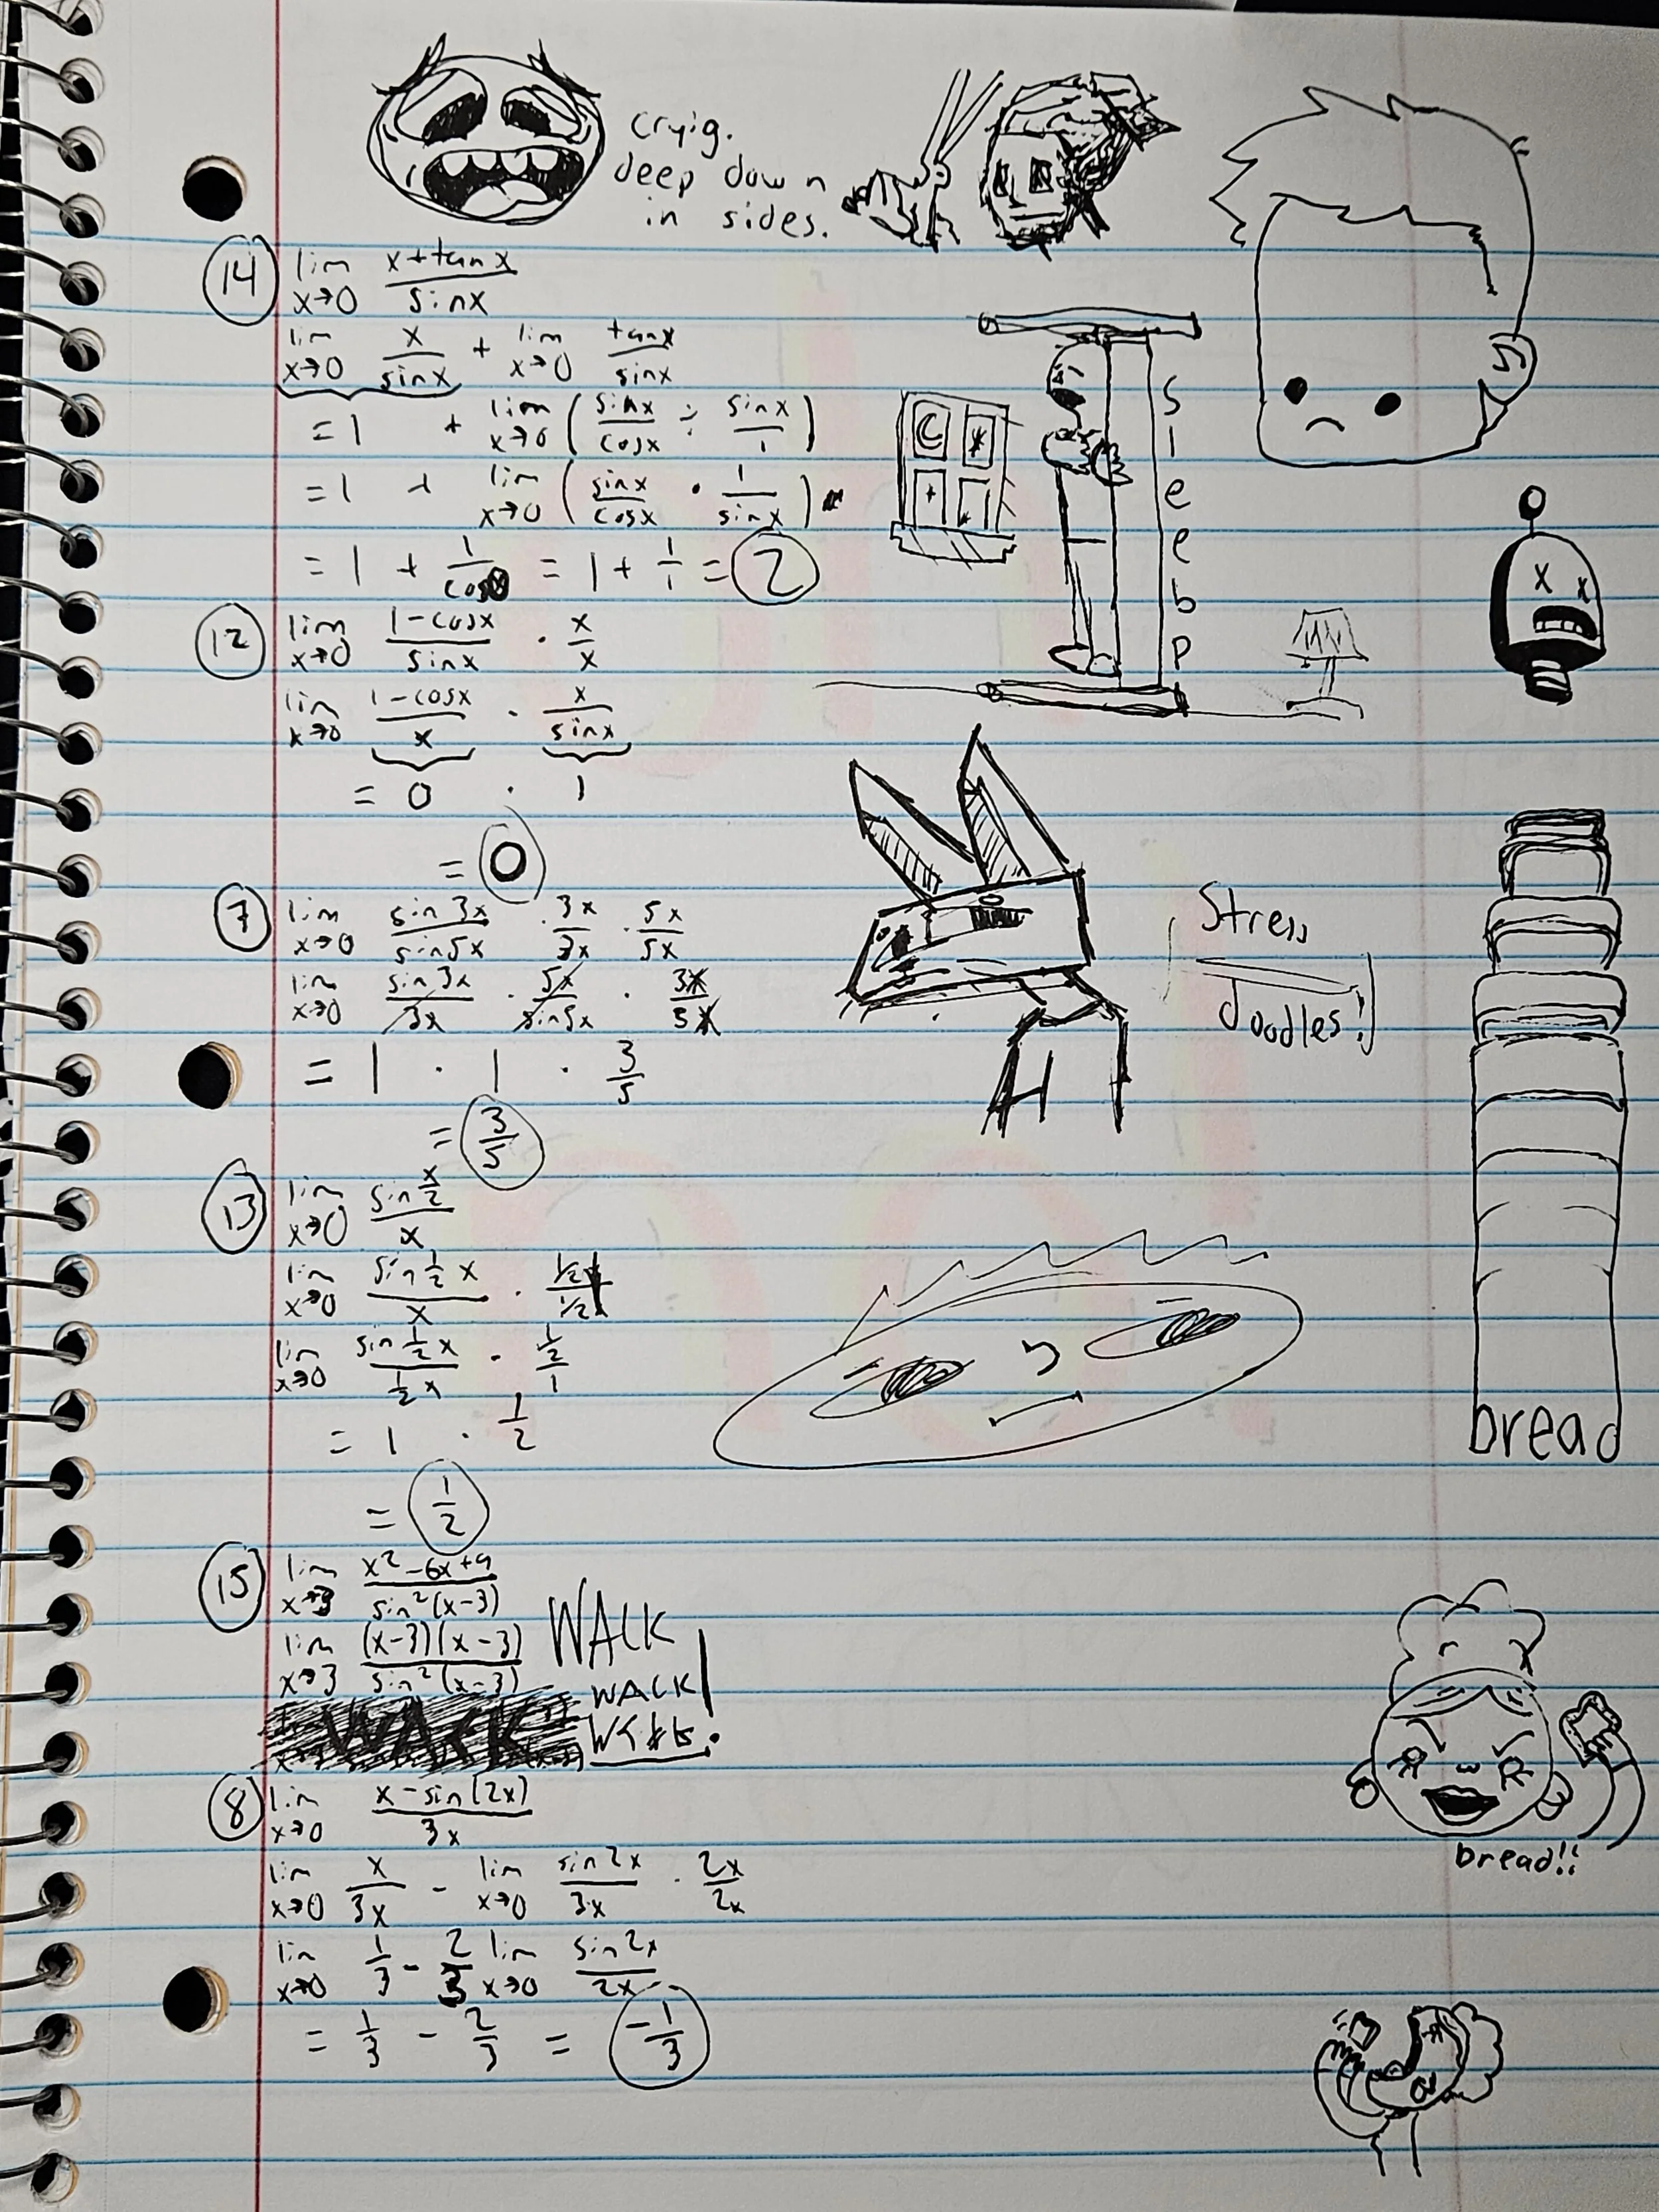 cryig.
deep down
in sides.
14 lim x→0 x+tanx/sinx
lim x→0 x/sinx + lim x→0 tanx/sinx
= 1 + lim x→0 (sinx/cosx ÷ sinx/1)
= 1 + lim x→0 (sinx/cosx · 1/sinx)
= 1 + 1/cos0 = 1 + 1/1 = 2
sleebp
12 lim x→0 1-cosx/sinx · x/x
lim x→0 1-cosx/x · x/sinx
= 0 · 1
= 0
7 lim x→0 sin3x/sin5x · 3x/3x · 5x/5x
lim x→0 sin3x/3x · 5x/sin5x · 3x/5x
= 1 · 1 · 3/5
= 3/5
Stress
doodles!
13 lim x→0 sin x/2 / x
lim x→0 sin 1/2 x / x · 1/2 / 1/2
lim x→0 sin 1/2 x / 1/2 x · 1/2 / 1
= 1 · 1/2
= 1/2
bread
15 lim x→3 x²-6x+9/sin²(x-3)
lim x→3 (x-3)(x-3)/sin²(x-3)
WALK
WALK!
WALK
8 lim x→0 x-sin(2x)/3x
lim x→0 x/3x - lim x→0 sin2x/3x · 2x/2x
lim x→0 1/3 - 2/3 lim x→0 sin2x/2x
= 1/3 - 2/3 = -1/3
bread!!